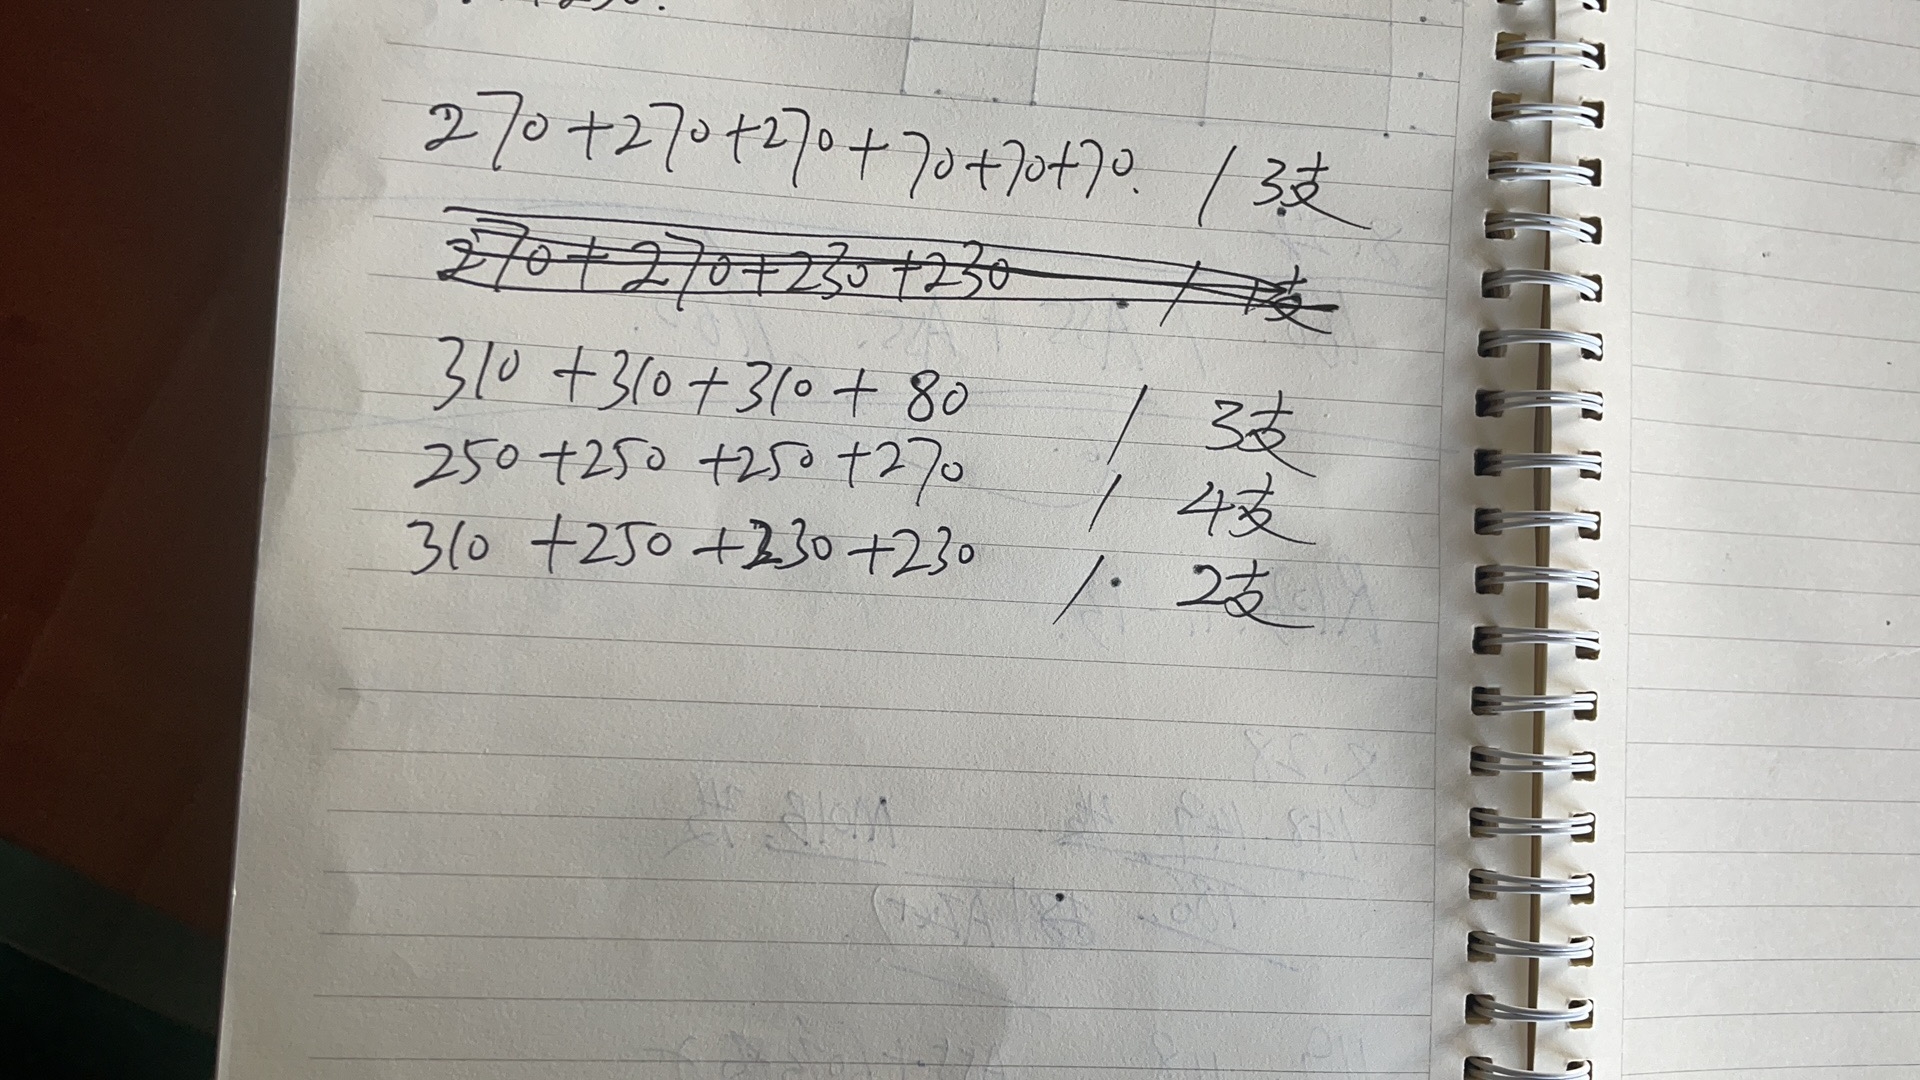 270+270+270+70+70+70. / 3支
270+270+230+230 /
310+310+310+80 / 3支
250+250+250+270 / 4支
310+250+230+230 / 2支